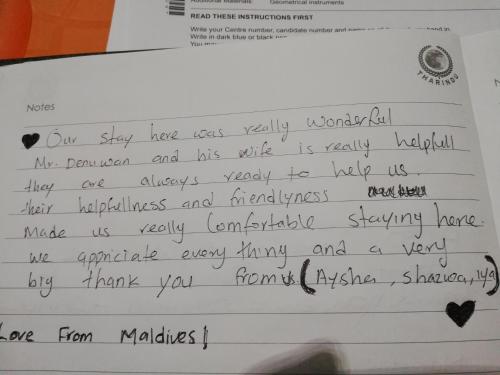 Additional Materials: Geometrical Instruments
READ THESE INSTRUCTIONS FIRST
Write your Centre number, candidate number and
Write in dark blue or black
You may
THARINDU
Notes
Our stay here was really wonderful
Mr. Denuwan and his wife is really helpfull
they are always ready to help us.
their helpfullness and friendlyness
Made us really Comfortable staying here.
we appriciate every thing and a very
big thank you from us (Aysha, Shazwa, iya)
Love From Maldives!